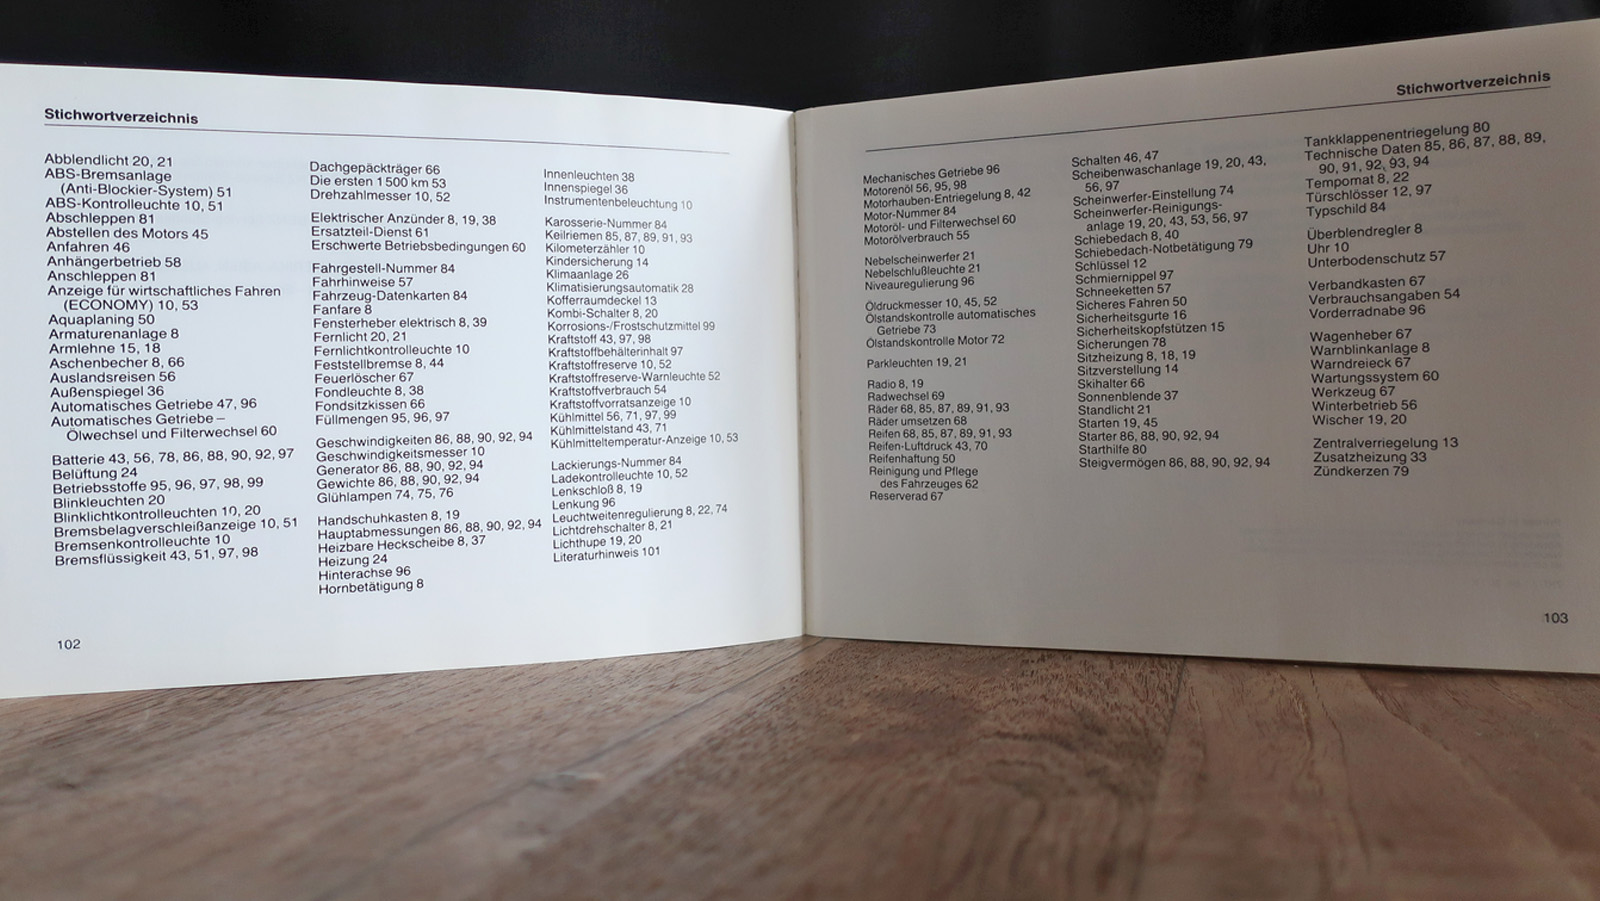 Stichwortverzeichnis
Abblendlicht 20, 21
ABS-Bremsanlage
(Anti-Blockier-System) 51
ABS-Kontrolleuchte 10, 51
Abschleppen 81
Abstellen des Motors 45
Anfahren 46
Anhängerbetrieb 58
Anschleppen 81
Anzeige für wirtschaftliches Fahren
(ECONOMY) 10, 53
Aquaplaning 50
Armaturenanlage 8
Armlehne 15, 18
Aschenbecher 8, 66
Auslandsreisen 56
Außenspiegel 36
Automatisches Getriebe 47, 96
Automatisches Getriebe –
Ölwechsel und Filterwechsel 60
Batterie 43, 56, 78, 86, 88, 90, 92, 97
Belüftung 24
Betriebsstoffe 95, 96, 97, 98, 99
Blinkleuchten 20
Blinklichtkontrolleuchten 10, 20
Bremsbelagverschleißanzeige 10, 51
Bremsenkontrolleuchte 10
Bremsflüssigkeit 43, 51, 97, 98
Dachgepäckträger 66
Die ersten 1 500 km 53
Drehzahlmesser 10, 52
Elektrischer Anzünder 8, 19, 38
Ersatzteil-Dienst 61
Erschwerte Betriebsbedingungen 60
Fahrgestell-Nummer 84
Fahrhinweise 57
Fahrzeug-Datenkarten 84
Fanfare 8
Fensterheber elektrisch 8, 39
Fernlicht 20, 21
Fernlichtkontrolleuchte 10
Feststellbremse 8, 44
Feuerlöscher 67
Fondleuchte 8, 38
Fondsitzkissen 66
Füllmengen 95, 96, 97
Geschwindigkeiten 86, 88, 90, 92, 94
Geschwindigkeitsmesser 10
Generator 86, 88, 90, 92, 94
Gewichte 86, 88, 90, 92, 94
Glühlampen 74, 75, 76
Handschuhkasten 8, 19
Hauptabmessungen 86, 88, 90, 92, 94
Heizbare Heckscheibe 8, 37
Heizung 24
Hinterachse 96
Hornbetätigung 8
Innenleuchten 38
Innenspiegel 36
Instrumentenbeleuchtung 10
Karosserie-Nummer 84
Keilriemen 85, 87, 89, 91, 93
Kilometerzähler 10
Kindersicherung 14
Klimaanlage 26
Klimatisierungsautomatik 28
Kofferraumdeckel 13
Kombi-Schalter 8, 20
Korrosions-/Frostschutzmittel 99
Kraftstoff 43, 97, 98
Kraftstoffbehälterinhalt 97
Kraftstoffreserve 10, 52
Kraftstoffreserve-Warnleuchte 52
Kraftstoffverbrauch 54
Kraftstoffvorratsanzeige 10
Kühlmittel 56, 71, 97, 99
Kühlmittelstand 43, 71
Kühlmitteltemperatur-Anzeige 10, 53
Lackierungs-Nummer 84
Ladekontrolleuchte 10, 52
Lenkschloß 8, 19
Lenkung 96
Leuchtweitenregulierung 8, 22, 74
Lichtdrehschalter 8, 21
Lichthupe 19, 20
Literaturhinweis 101
102
Stichwortverzeichnis
Mechanisches Getriebe 96
Motorenöl 56, 95, 98
Motorhauben-Entriegelung 8, 42
Motor-Nummer 84
Motoröl- und Filterwechsel 60
Motorölverbrauch 55
Nebelscheinwerfer 21
Nebelschlußleuchte 21
Niveauregulierung 96
Öldruckmesser 10, 45, 52
Ölstandskontrolle automatisches
Getriebe 73
Ölstandskontrolle Motor 72
Parkleuchten 19, 21
Radio 8, 19
Radwechsel 69
Räder 68, 85, 87, 89, 91, 93
Räder umsetzen 68
Reifen 68, 85, 87, 89, 91, 93
Reifen-Luftdruck 43, 70
Reifenhaftung 50
Reinigung und Pflege
des Fahrzeuges 62
Reserverad 67
Schalten 46, 47
Scheibenwaschanlage 19, 20, 43,
56, 97
Scheinwerfer-Einstellung 74
Scheinwerfer-Reinigungs-
anlage 19, 20, 43, 53, 56, 97
Schiebedach 8, 40
Schiebedach-Notbetätigung 79
Schlüssel 12
Schmiernippel 97
Schneeketten 57
Sicheres Fahren 50
Sicherheitsgurte 16
Sicherheitskopfstützen 15
Sicherungen 78
Sitzheizung 8, 18, 19
Sitzverstellung 14
Skihalter 66
Sonnenblende 37
Standlicht 21
Starten 19, 45
Starter 86, 88, 90, 92, 94
Starthilfe 80
Steigvermögen 86, 88, 90, 92, 94
Tankklappenentriegelung 80
Technische Daten 85, 86, 87, 88, 89,
90, 91, 92, 93, 94
Tempomat 8, 22
Türschlösser 12, 97
Typschild 84
Überblendregler 8
Uhr 10
Unterbodenschutz 57
Verbandkasten 67
Verbrauchsangaben 54
Vorderradnabe 96
Wagenheber 67
Warnblinkanlage 8
Warndreieck 67
Wartungssystem 60
Werkzeug 67
Winterbetrieb 56
Wischer 19, 20
Zentralverriegelung 13
Zusatzheizung 33
Zündkerzen 79
103